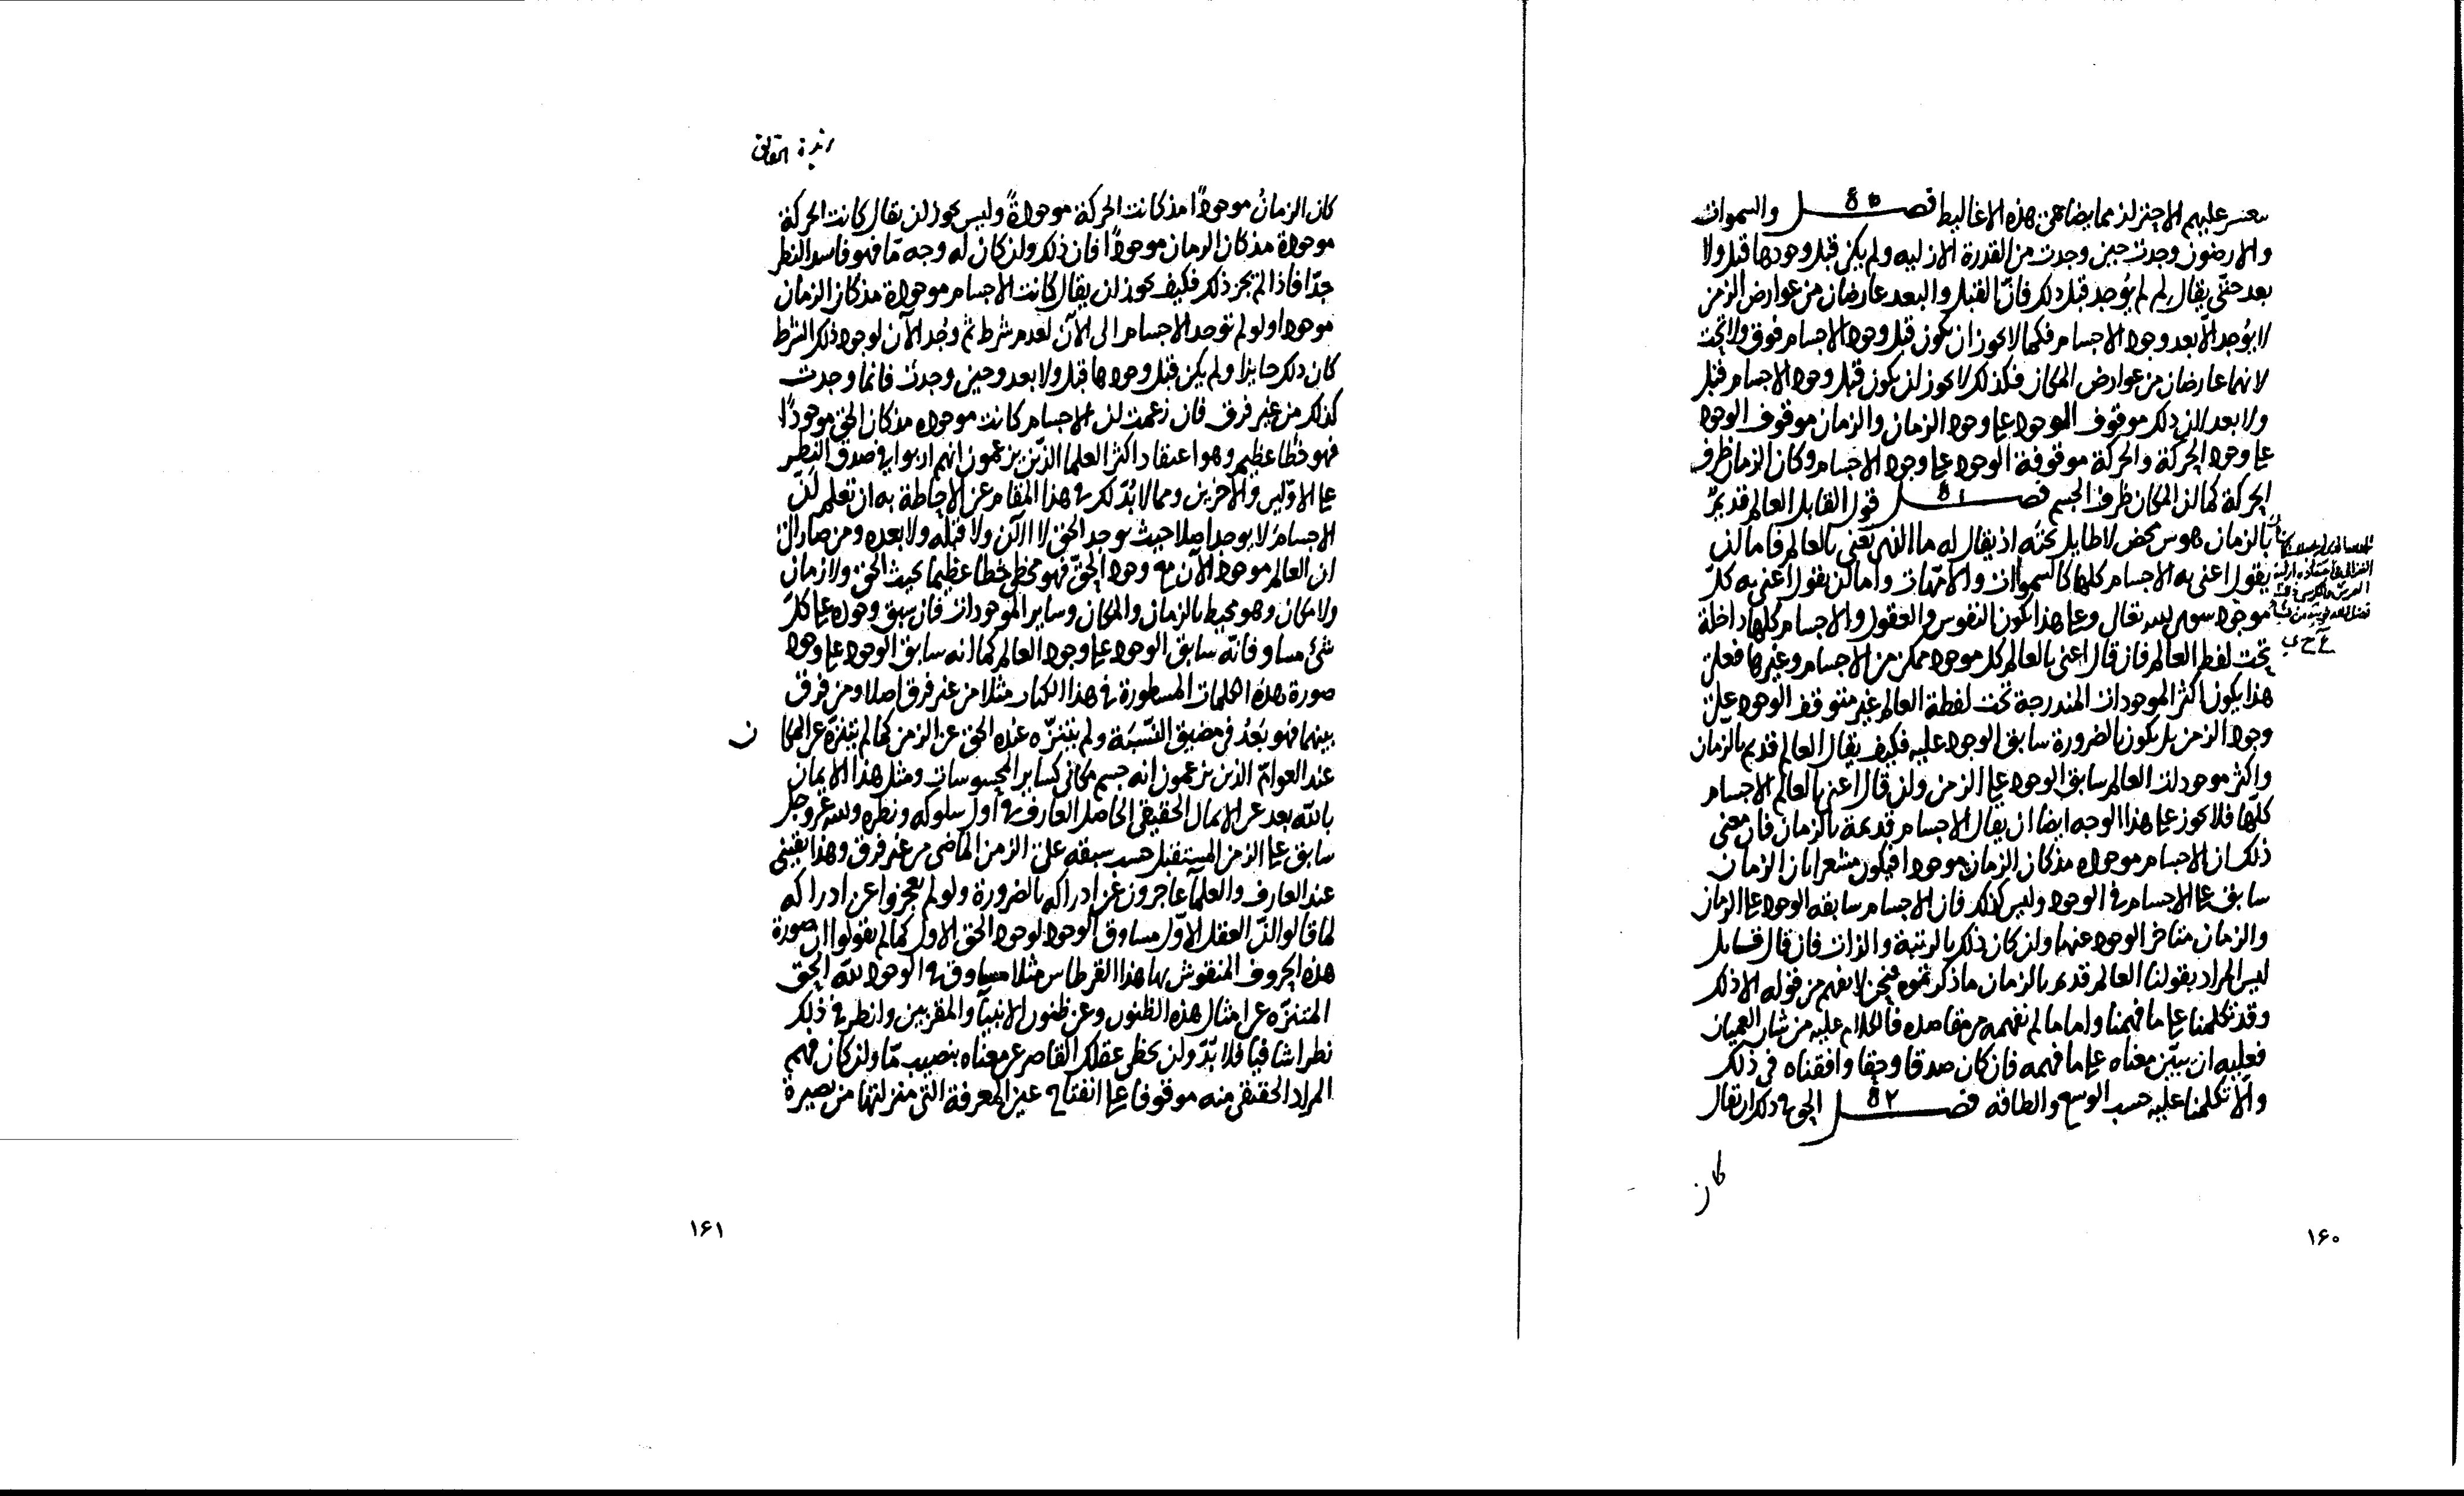 يعسر عليهم الاحتراز مما يضاهي هذه الاغاليط فصل ٥٥ والسموات
والارضون وجدت حين وجدت من القدرة الازليه ولم يكن قبل وجودها قبل ولا
بعد حتى يقال لم لم يوجد قبل ذلك فان القبل والبعد عارضان من عوارض الزمن
لا يوجد الا بعد وجود الاجسام فكما لا يجوز ان يكون قبل وجود الاجسام فوق ولا تحت
لانهما عارضان من عوارض المكان فكذلك لا يجوز ان يكون قبل وجود الاجسام قبل
ولا بعد لان ذلك موقوف الوجود على وجود الزمان والزمان موقوف الوجود
على وجود الحركة والحركة موقوفة الوجود على وجود الاجسام وكان الزمان ظرف
الحركة كما ان المكان ظرف الجسم فصل قول القايل العالم قديم
بالزمان هوس محض لا طايل تحته اذ يقال له ما الذي تعنى بالعالم فاما ان
يقول اعنى به الاجسام كلها كالسموات والامهات واما ان يقول اعنى به كل
موجود سوى الله تعالى وعلى هذا تكون النفوس والعقول والاجسام كلها داخلة
تحت لفظ العالم فان قال اعنى بالعالم كل موجود ممكن من الاجسام وغيرها فعلى
هذا يكون اكثر الموجودات المندرجة تحت لفظة العالم غير متوقف الوجود على
وجود الزمن بل يكون بالضرورة سابق الوجود عليه فكيف يقال العالم قديم بالزمان
واكثر موجودات العالم سابق الوجود على الزمن وان قال اعنى بالعالم الاجسام
كلها فلا يجوز على هذا الوجه ايضا ان يقال الاجسام قديمة بالزمان فان معنى
ذلك ان الاجسام موجوده مذ كان الزمان موجودا فيكون مشعرا بان الزمان
سابق على الاجسام في الوجود وليس كذلك فان الاجسام سابقه الوجود على الزمان
والزمان متاخر الوجود عنها وان كان ذلك بالرتبة والذات فان قال قايل
ليس المراد بقولنا العالم قديم بالزمان ما ذكرتموه فنحن لا نفهم من قوله الا ذلك
وقد تكلمنا على ما فهمنا واما ما لم نفهمه من مقاصده فالكلام عليه من شان العميان
فعليه ان يبين معناه على ما فهمه فان كان صدقا وحقا وافقناه في ذلك
والا تكلمنا عليه حسب الوسع والطاقه فصل الحق في ذلك ان يقال
كان
١۶٠
زبدة الحقائق
كان الزمان موجودا مذ كانت الحركة موجودة وليس يجوز ان يقال كانت الحركة
موجودة مذ كان الزمان موجودا فان ذلك وان كان له وجه ما فهو فاسد النظر
جدا فاذا لم يجز ذلك فكيف يجوز ان يقال كانت الاجسام موجودة مذ كان الزمان
موجودا ولو لم توجد الاجسام الى الآن لعدم شرط ثم وجد الآن لوجود ذلك الشرط
كان ذلك جايزا ولم يكن قبل وجودها قبل ولا بعد وحين وجدت فانما وجدت
كذلك من غير فرق فان زعمت ان الاجسام كانت موجوده مذ كان الحق موجودا
فهو خطأ عظيم وهو اعتقاد اكثر العلما الذين يزعمون انهم اربوا في صدق النظر
على الاولين والآخرين ومما لا بد لك في هذا المقام عن الاحاطة به ان تعلم ان
الاجسام لا يوجد اصلا حيث يوجد الحق لا الآن ولا قبله ولا بعده ومن صار الى
ان العالم موجود الآن مع وجود الحق فهو مخطئ خطأ عظيما بحيث الحق ولا زمان
ولا مكان وهو محيط بالزمان والمكان وساير الموجودات فان سبق وجوده على كل
شئ مساو فانه سابق الوجود على وجود العالم كما انه سابق الوجود على وجود
صورة هذه الكلمات المسطورة في هذا الكتاب مثلا من غير فرق اصلا ومن فرق
بينهما فهو بعد في مضيق التشبيه ولم يتنزه عنده الحق عن الزمن كما لم يتنزه عن المكان
عند العوام الذين يزعمون انه جسم مكاني كساير المحسوسات ومثل هذا الايمان
بالله بعد عن الايمان الحقيقى الحاصل للعارف في اول سلوكه ونظره والله عز وجل
سابق على الزمن المستقبل حسب سبقه على الزمن الماضى من غير فرق وهذا يقيني
عند العارف والعلمآ عاجزون عن ادراكه بالضرورة ولو لم يعجزوا عن ادراكه
لما قالوا ان العقل الاول مساوق الوجود لوجود الحق الاول كما لم يقولوا ان صورة
هذه الحروف المنقوش بها هذا القرطاس مثلا مساوق في الوجود لله الحق
المتنزه عن امثال هذه الظنون وعن ظنون الانبيآ والمقربين وانظر في ذلك
نظرا شافيا فلا بد وان يحظى عقلك القاصر عن معناه بنصيب ما وان كان فهم
المراد الحقيقى منه موقوفا على انفتاح عين المعرفة التى منزلتها من بصيرة
١۶١